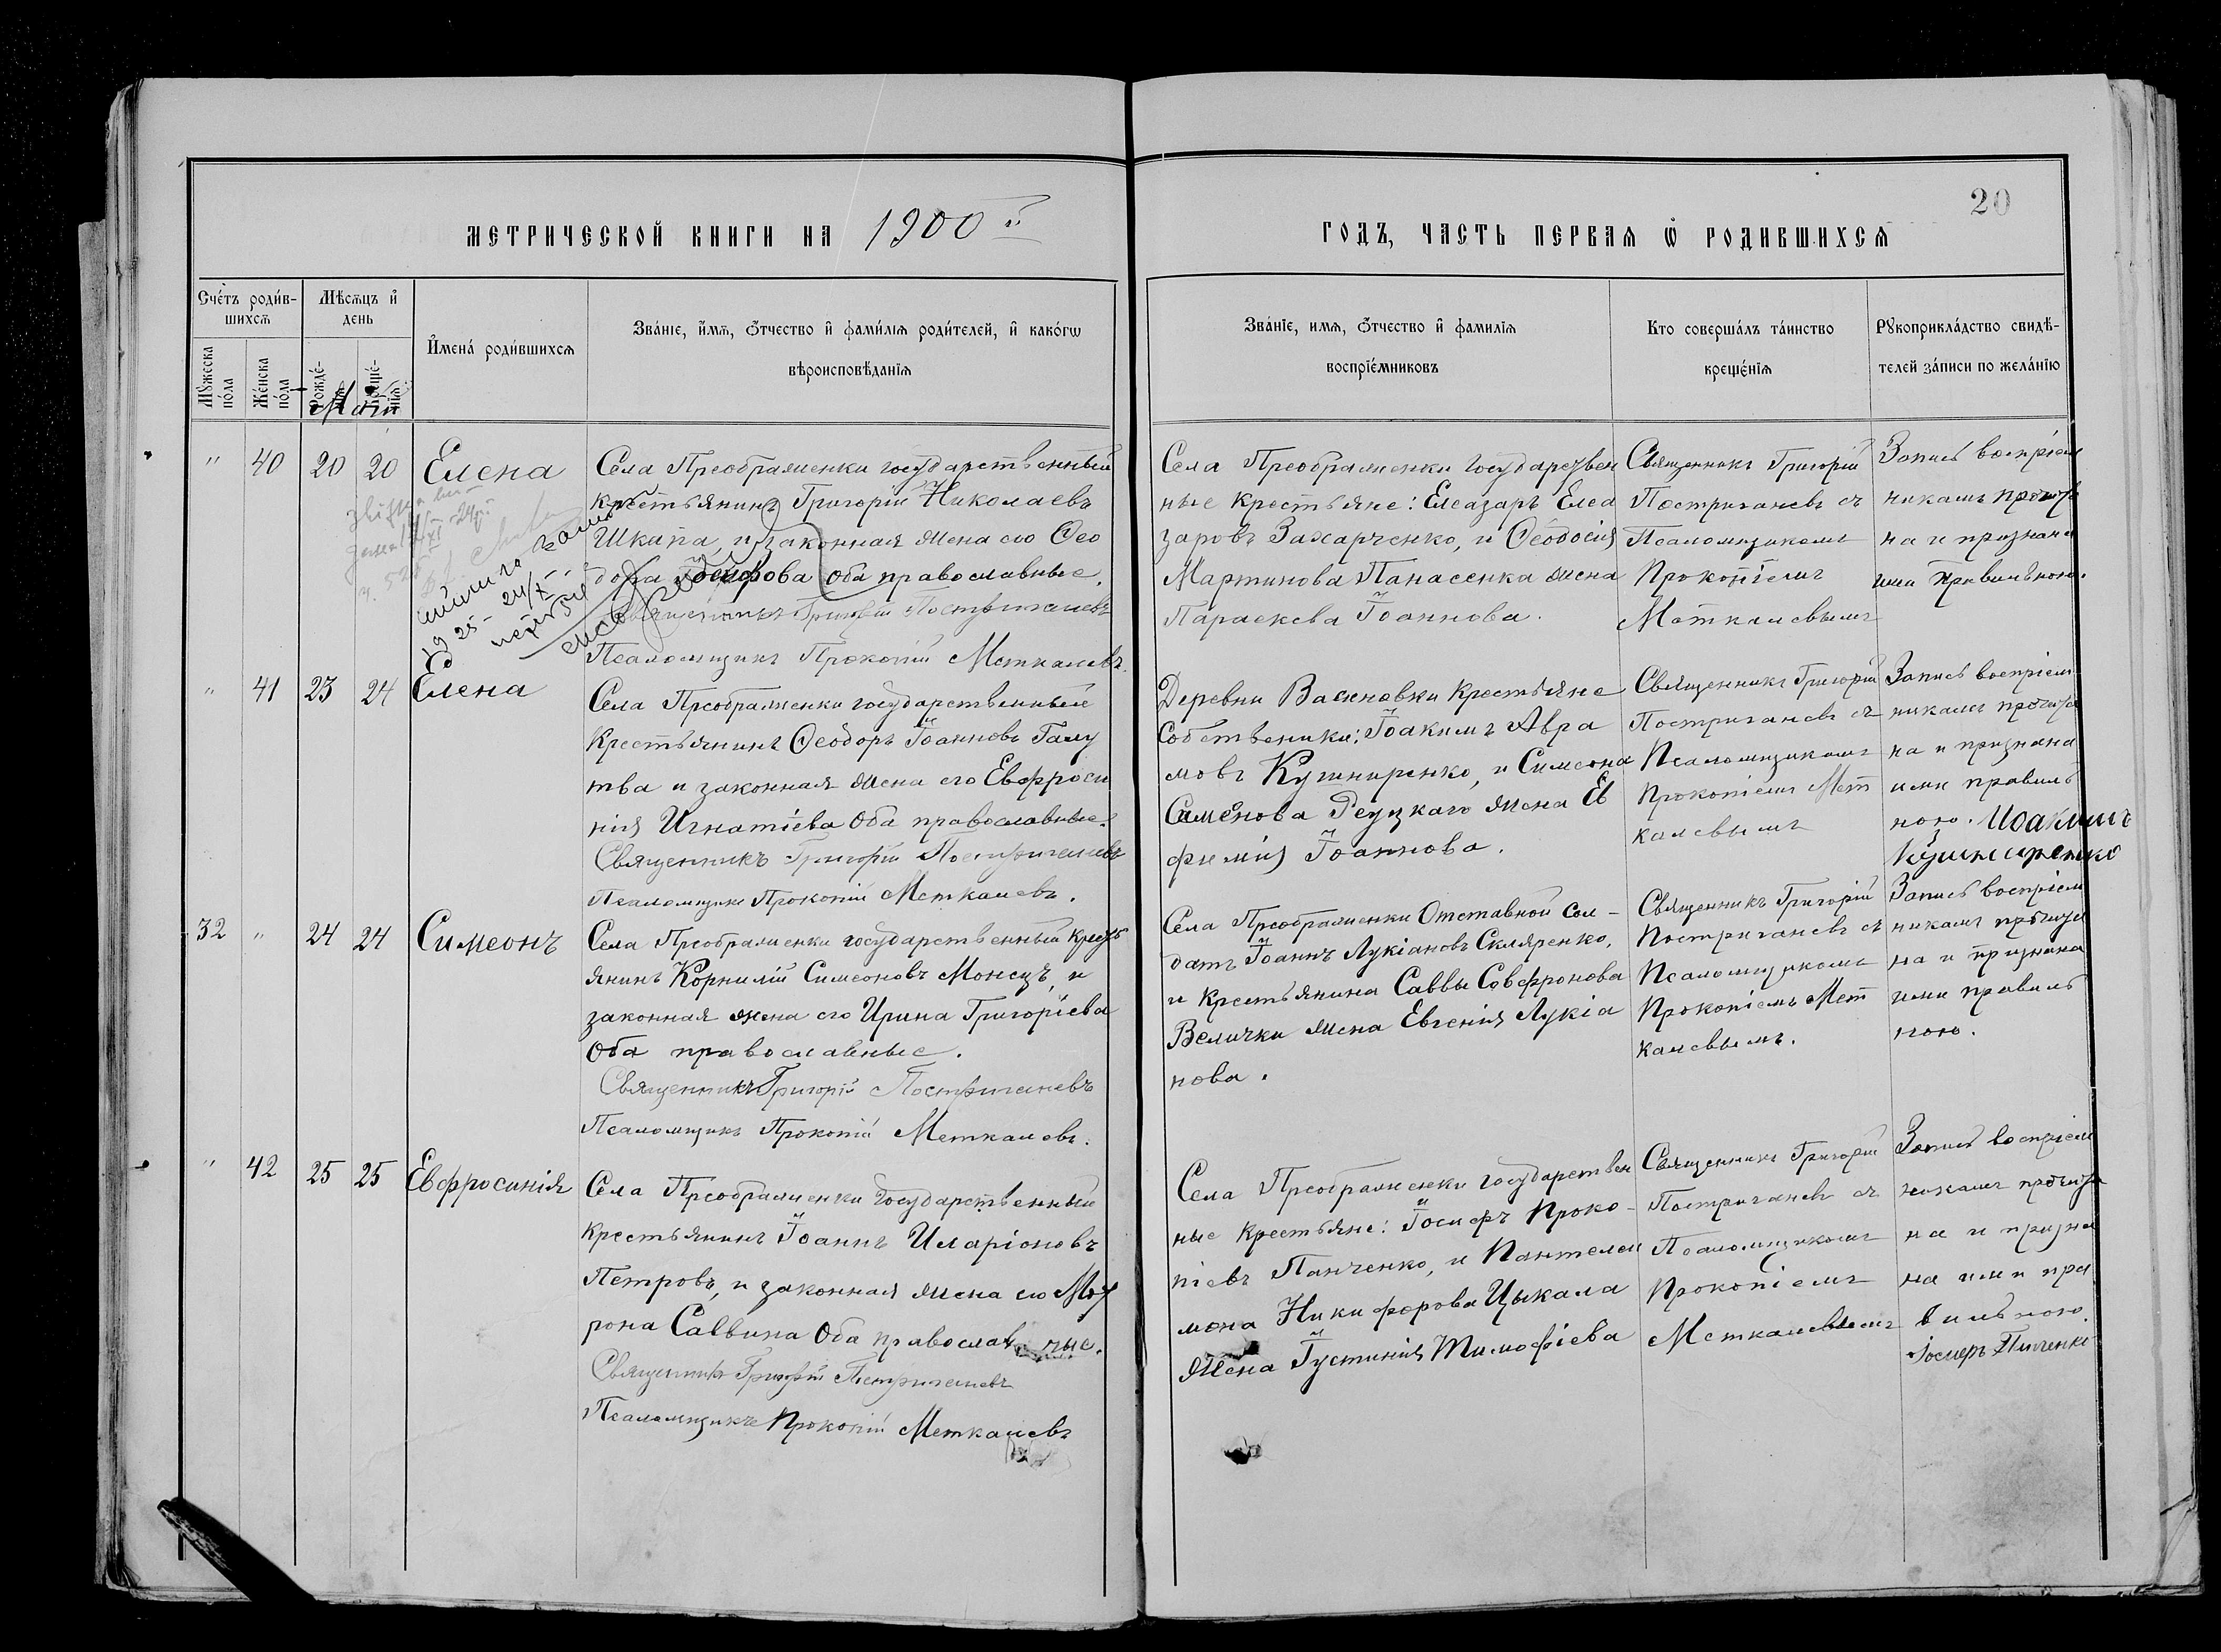 20
МЕТРИЧЕСКОЙ КНИГИ НА 1900 й
ГОДЪ, ЧАСТЬ ПЕРВАЯ Ѡ РОДИВШИХСЯ
Сче́тъ роди́в-
шихсѧ
Мѣсѧцъ и҆
день
И҆мена́ роди́вшихсѧ
Зва́нїе, и҆́мѧ, ѻ҆́тчество и҆ фами́лїѧ роди́телей, и҆ како́гѡ
вѣроисповѣ́данїѧ
Мꙋ́жеска
по́ла
Же́нска
по́ла
Рожде́-
нїѧ
Креще́-
нїѧ
Май
Зва́нїе, имѧ, ѻ҆́тчество и҆ фамилїѧ
воспрїе́мниковъ
Кто соверша́лъ та́инство
креще́нїѧ
Рꙋкоприкла́дство свидѣ́-
телей за́писи по жела́нїю
" 40 20 20 Елена
Села Преображенки государственный
крестьянинъ Григорій Николаевъ
Шкапа, и законная жена его Ѳео
дора Іосифова оба православные.
Священникъ Григорій Постриганевъ
Псаломщикъ Прокопій Меткалевъ.
Села Преображенки государствен
ные крестьяне: Елеазаръ Елеа
заровъ Захарченко, и Ѳеодосія
Мартинова Панасенка жена
Параскева Іоаннова.
Священникъ Григорій
Постриганевъ съ
Псаломщикомъ
Прокопіемъ
Меткалевымъ
Запись воспріем
никамъ прочита
на и признана
ими правильною.
1925 - 24/X
" 41 23 24 Елена
Села Преображенки государственный
крестьянинъ Ѳеодоръ Іоанновъ Галу
тва и законная жена его Евфроси
нія Игнатіева оба православные.
Священникъ Григорій Постриганевъ
Псаломщикъ Прокопій Меткалевъ.
Деревни Васиновки крестьяне
собственики: Іоакимъ Авра
мовъ Кушниренко, и Симеона
Симеонова Реуцкаго жена Ев
фимія Іоаннова.
Священникъ Григорій
Постриганевъ съ
Псаломщикомъ
Прокопіемъ Мет
калевымъ
Запись воспріем
никамъ прочита
на и признана
ими правиль
ною. Иоакимъ
Кушниренко
32 " 24 24 Симеонъ
Села Преображенки государственный кресть
янинъ Корнилій Симеоновъ Монецъ, и
законная жена его Ирина Григоріева
оба православные.
Священникъ Григорій Постриганевъ
Псаломщикъ Прокопій Меткалевъ.
Села Преображенки Отставной сол-
датъ Іоаннъ Лукіановъ Скляренко,
и крестьянина Саввы Совфронова
Велички жена Евгенія Лукіа
нова.
Священникъ Григорій
Постриганевъ съ
Псаломщикомъ
Прокопіемъ Мет
калевымъ.
Запись воспріем
никамъ прочита
на и признана
ими правиль
ною.
" 42 25 25 Евфросинія
Села Преображенки государственный
крестьянинъ Іоаннъ Иларіоновъ
Петровъ, и законная жена его Мат
рона Саввина оба православные.
Священникъ Григорій Постриганевъ
Псаломщикъ Прокопій Меткалевъ
Села Преображенки государствен
ные крестьяне: Іосифъ Проко-
піевъ Панченко, и Пантелеи
мона Никифорова Цыкала
жена Іустинія Тимофіева
Священникъ Григорій
Постриганевъ съ
Псаломщикомъ
Прокопіемъ
Меткалевымъ
Запись воспріем
никамъ прочита
на и призна
на ими пра
вильною.